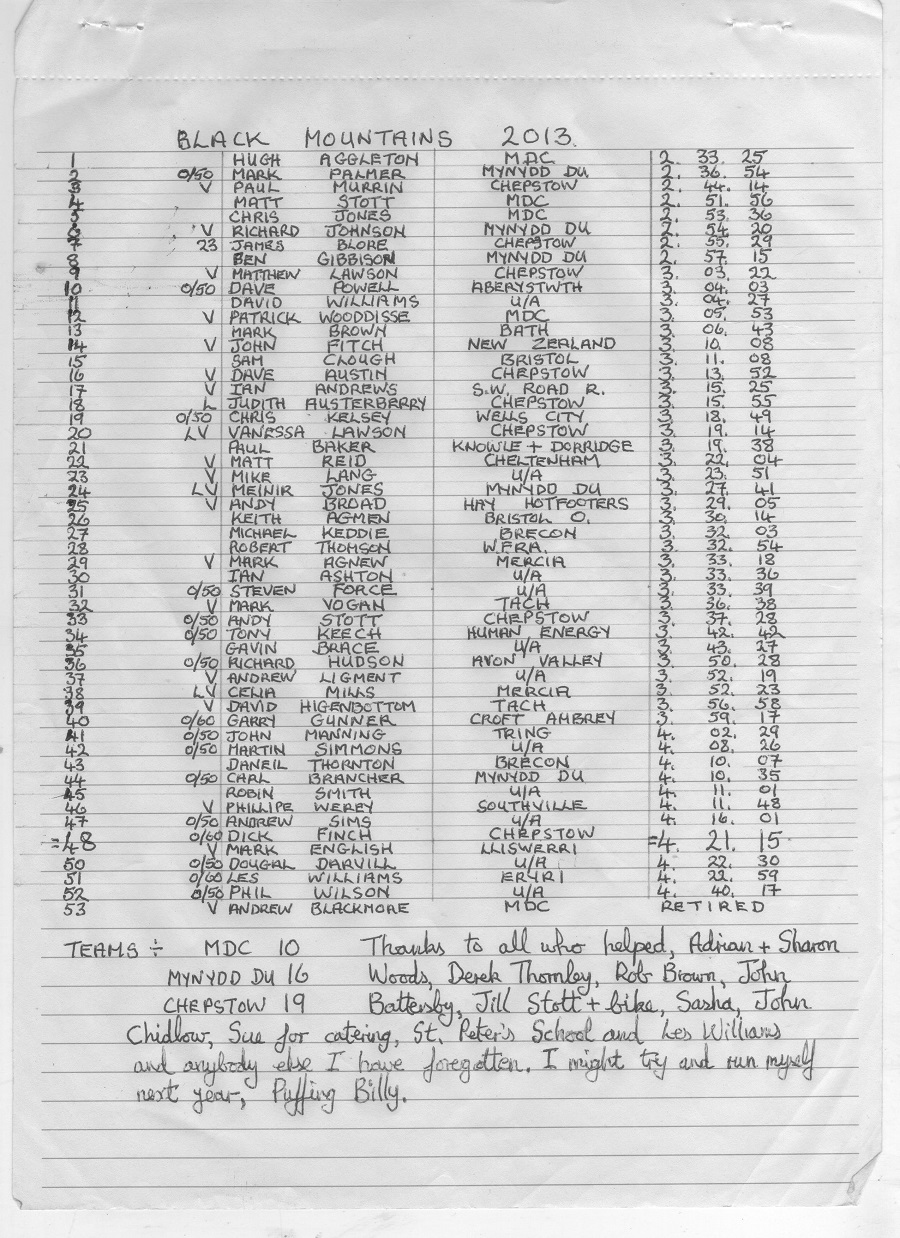 BLACK MOUNTAINS 2013.
1 HUGH AGGLETON MDC 2. 33. 25
2 O/50 MARK PALMER MYNYDD DU 2. 36. 54
3 V PAUL MURRIN CHEPSTOW 2. 44. 14
4 MATT STOTT MDC 2. 51. 56
5 CHRIS JONES MDC 2. 53. 36
6 V RICHARD JOHNSON MYNYDD DU 2. 54. 20
7 23 JAMES BLORE CHEPSTOW 2. 55. 29
8 BEN GIBBISON MYNYDD DU 2. 57. 15
9 V MATTHEW LAWSON CHEPSTOW 3. 03. 22
10 O/50 DAVE POWELL ABERYSTWTH 3. 04. 03
11 DAVID WILLIAMS U/A 3. 04. 27
12 V PATRICK WOODDISSE MDC 3. 05. 53
13 MARK BROWN BATH 3. 06. 43
14 V JOHN FITCH NEW ZEALAND 3. 10. 08
15 SAM CLOUGH BRISTOL 3. 11. 08
16 V DAVE AUSTIN CHEPSTOW 3. 13. 52
17 V IAN ANDREWS S.W. ROAD R. 3. 15. 25
18 L JUDITH AUSTERBERRY CHEPSTOW 3. 15. 55
19 O/50 CHRIS KELSEY WELLS CITY 3. 18. 49
20 LV VANESSA LAWSON CHEPSTOW 3. 19. 14
21 PAUL BAKER KNOWLE + DORRIDGE 3. 19. 38
22 V MATT REID CHELTENHAM 3. 22. 04
23 V MIKE LANG U/A 3. 23. 51
24 LV MEINIR JONES MYNYDD DU 3. 27. 41
25 V ANDY BROAD HAY HOTFOOTERS 3. 29. 05
26 KEITH AGMEN BRISTOL O. 3. 30. 14
27 MICHAEL KEDDIE BRECON 3. 32. 03
28 ROBERT THOMSON W.F.R.A. 3. 32. 54
29 V MARK AGNEW MERCIA 3. 33. 18
30 IAN ASHTON U/A 3. 33. 36
31 O/50 STEVEN FORCE U/A 3. 33. 39
32 V MARK VOGAN TACH 3. 36. 38
33 O/50 ANDY STOTT CHEPSTOW 3. 37. 28
34 O/50 TONY KEECH HUMAN ENERGY 3. 42. 42
35 GAVIN BRACE U/A 3. 43. 27
36 O/50 RICHARD HUDSON AVON VALLEY 3. 50. 28
37 V ANDREW LIGMENT U/A 3. 52. 19
38 LV CELIA MILLS MERCIA 3. 52. 23
39 V DAVID HIGENBOTTOM TACH 3. 56. 58
40 O/60 GARRY GUNNER CROFT AMBREY 3. 59. 17
41 O/50 JOHN MANNING TRING 4. 02. 29
42 O/50 MARTIN SIMMONS U/A 4. 08. 26
43 DANEIL THORNTON BRECON 4. 10. 07
44 O/50 CARL BRANCHER MYNYDD DU 4. 10. 35
45 ROBIN SMITH U/A 4. 11. 01
46 V PHILLIPE WEREY SOUTHVILLE 4. 11. 48
47 O/50 ANDREW SIMS U/A 4. 16. 01
=48 O/60 DICK FINCH CHEPSTOW =4. 21. 15
V MARK ENGLISH LLISWERRI
50 O/50 DOUGAL DARVILL U/A 4 22. 30
51 O/60 LES WILLIAMS ERYRI 4. 22. 59
52 O/50 PHIL WILSON U/A 4. 40. 17
53 V ANDREW BLACKMORE MDC RETIRED
TEAMS ÷ MDC 10 Thanks to all who helped, Adrian + Sharon
MYNYDD DU 16 Woods, Derek Thornley, Rob Brown, John
CHEPSTOW 19 Battersby, Jill Stott + bike, Sasha, John
Chidlow, Sue for catering, St. Peter's School and Les Williams
and anybody else I have foregotten. I might try and run myself
next year, Puffing Billy.